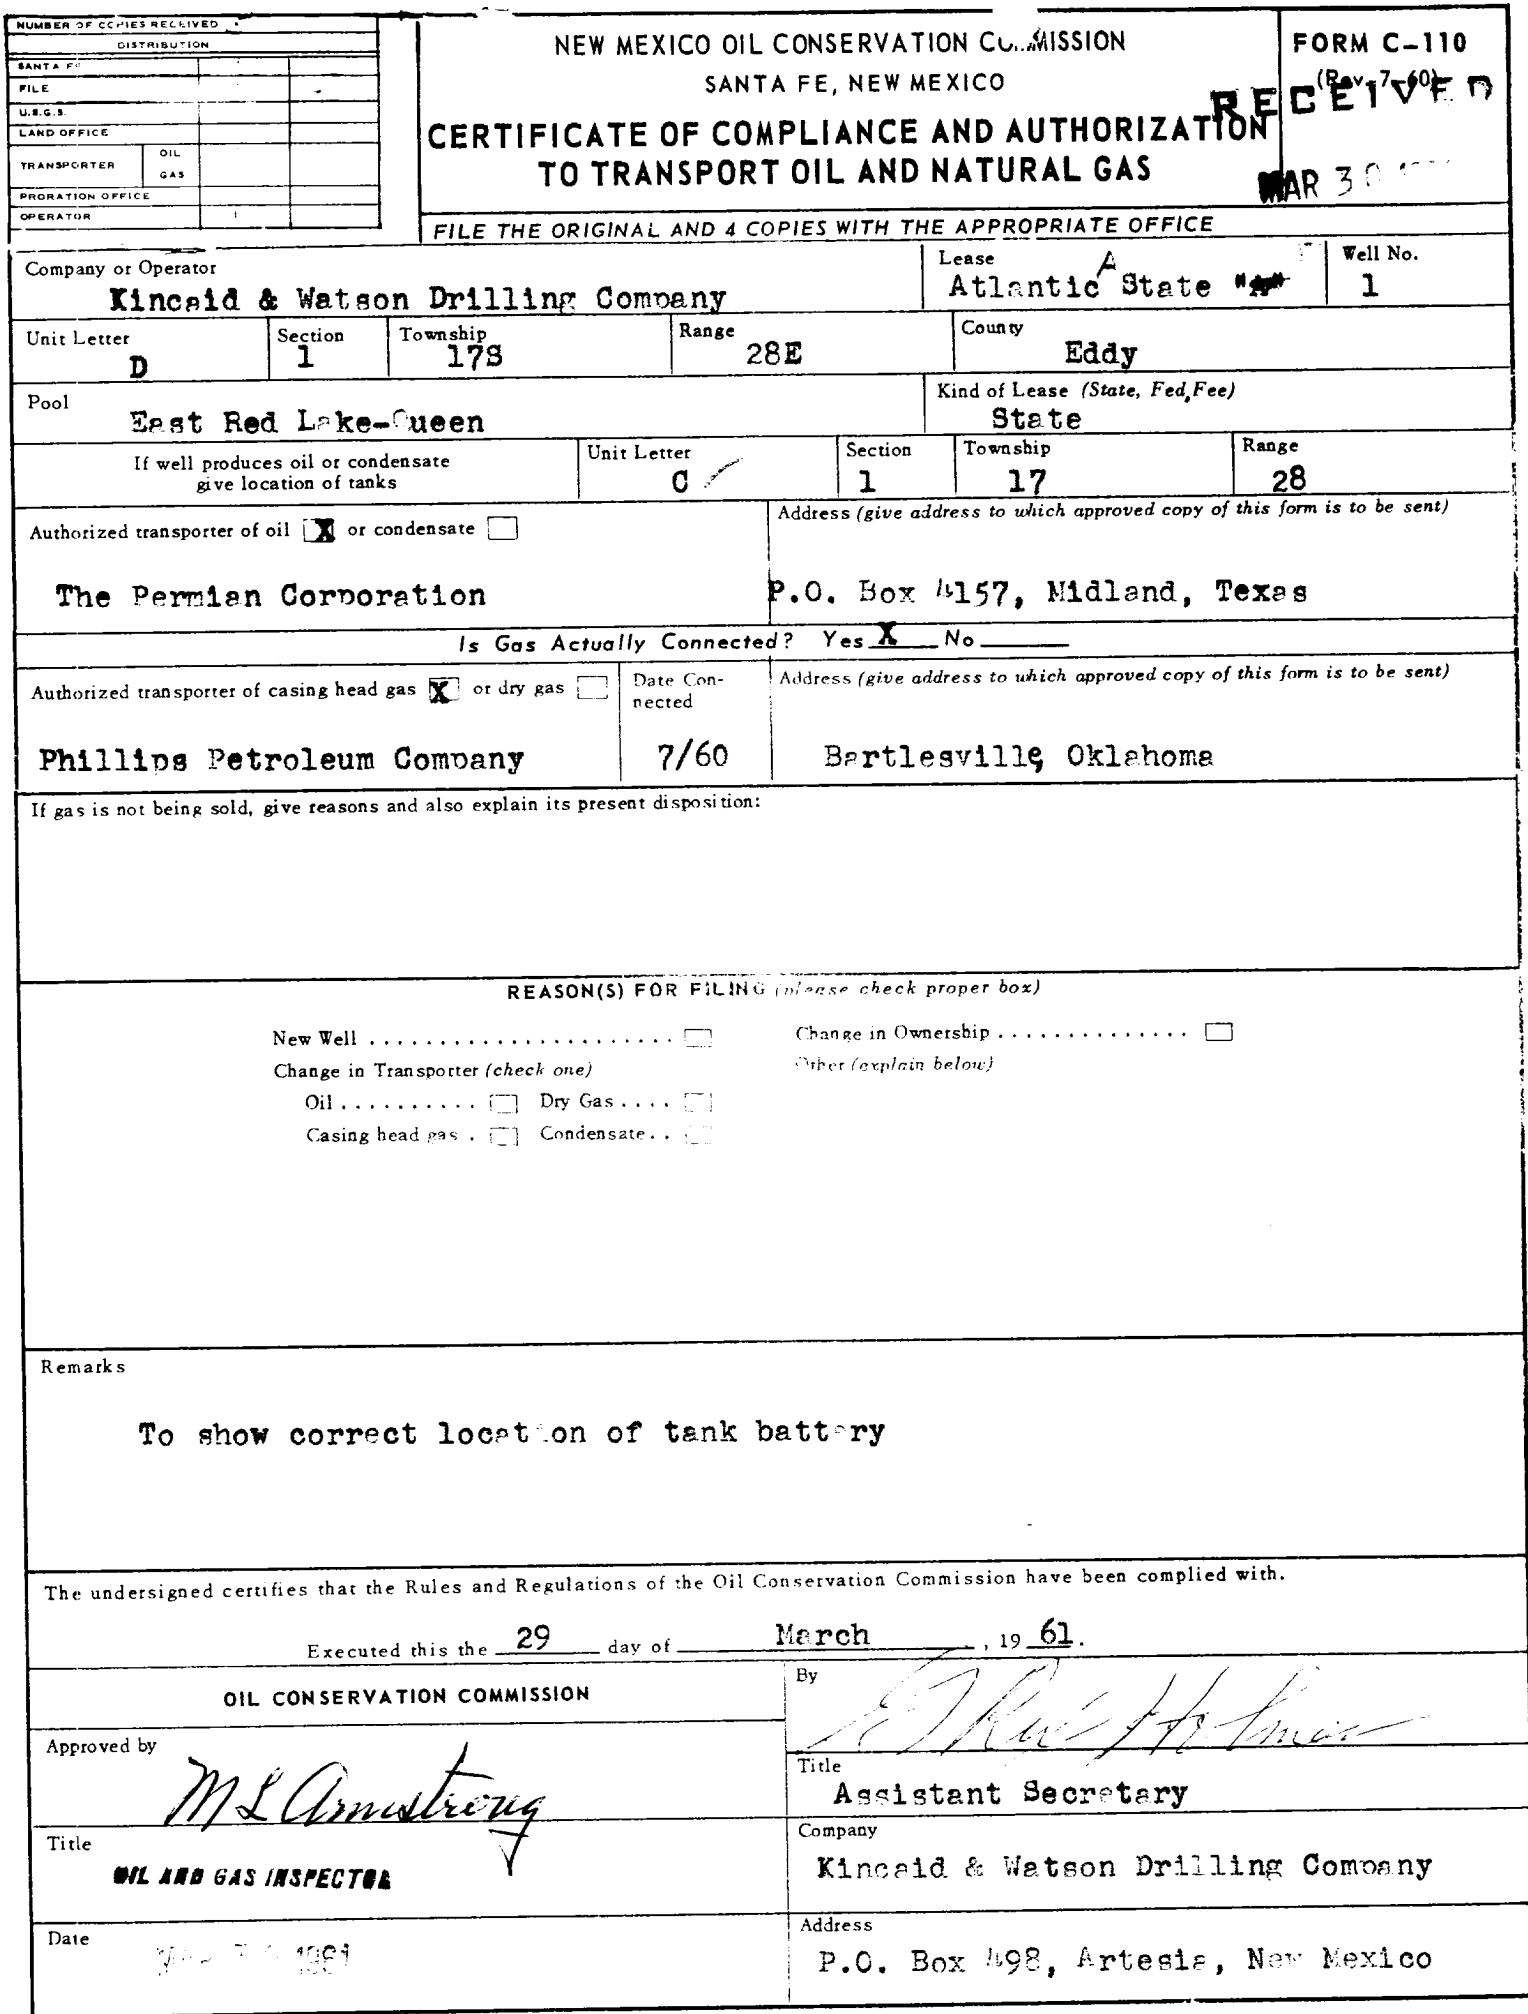 NUMBER OF COPIES RECEIVED
DISTRIBUTION
SANTA FE
FILE
U.S.G.S.
LAND OFFICE
TRANSPORTER OIL
GAS
PRORATION OFFICE
OPERATOR
NEW MEXICO OIL CONSERVATION COMMISSION
SANTA FE, NEW MEXICO
CERTIFICATE OF COMPLIANCE AND AUTHORIZATION
TO TRANSPORT OIL AND NATURAL GAS
FILE THE ORIGINAL AND 4 COPIES WITH THE APPROPRIATE OFFICE
FORM C-110
(Rev. 7-60)
RECEIVED
MAR 30
Company or Operator
Kincaid & Watson Drilling Company
Lease
Atlantic A State
Well No.
1
Unit Letter
D
Section
1
Township
17S
Range
28E
County
Eddy
Pool
East Red Lake-Queen
Kind of Lease (State, Fed, Fee)
State
If well produces oil or condensate
give location of tanks
Unit Letter
C
Section
1
Township
17
Range
28
Authorized transporter of oil X or condensate
The Permian Corporation
Address (give address to which approved copy of this form is to be sent)
P.O. Box 4157, Midland, Texas
Is Gas Actually Connected? Yes X No
Authorized transporter of casing head gas X or dry gas
Phillips Petroleum Company
Date Con-
nected
7/60
Address (give address to which approved copy of this form is to be sent)
Bartlesville, Oklahoma
If gas is not being sold, give reasons and also explain its present disposition:
REASON(S) FOR FILING (please check proper box)
New Well . . . . . . . . . . . . . . . . . . . . . .
Change in Ownership . . . . . . . . . . . . . .
Change in Transporter (check one)
Other (explain below)
Oil . . . . . . . . . . Dry Gas . . . .
Casing head gas . Condensate . .
Remarks
To show correct location of tank battery
The undersigned certifies that the Rules and Regulations of the Oil Conservation Commission have been complied with.
Executed this the 29 day of March , 19 61.
OIL CONSERVATION COMMISSION
Approved by
M L Armstrong
Title
OIL AND GAS INSPECTOR
Date
1961
By
Holmes
Title
Assistant Secretary
Company
Kincaid & Watson Drilling Company
Address
P.O. Box 498, Artesia, New Mexico